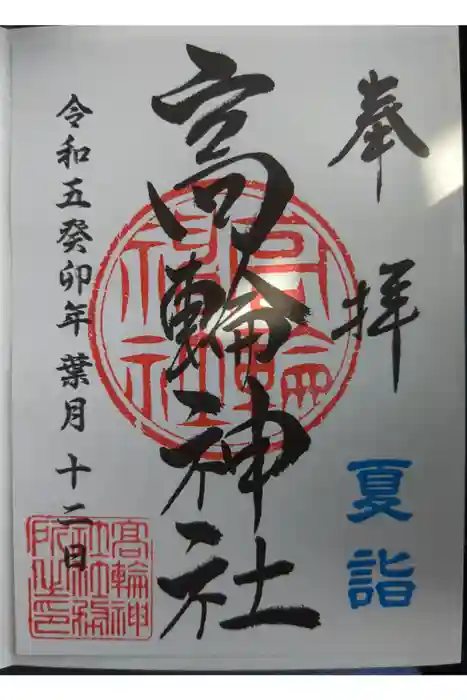 奉拝
夏詣
高輪神社
高輪神社
令和五癸卯年葉月十二日
高輪神社社務所之印